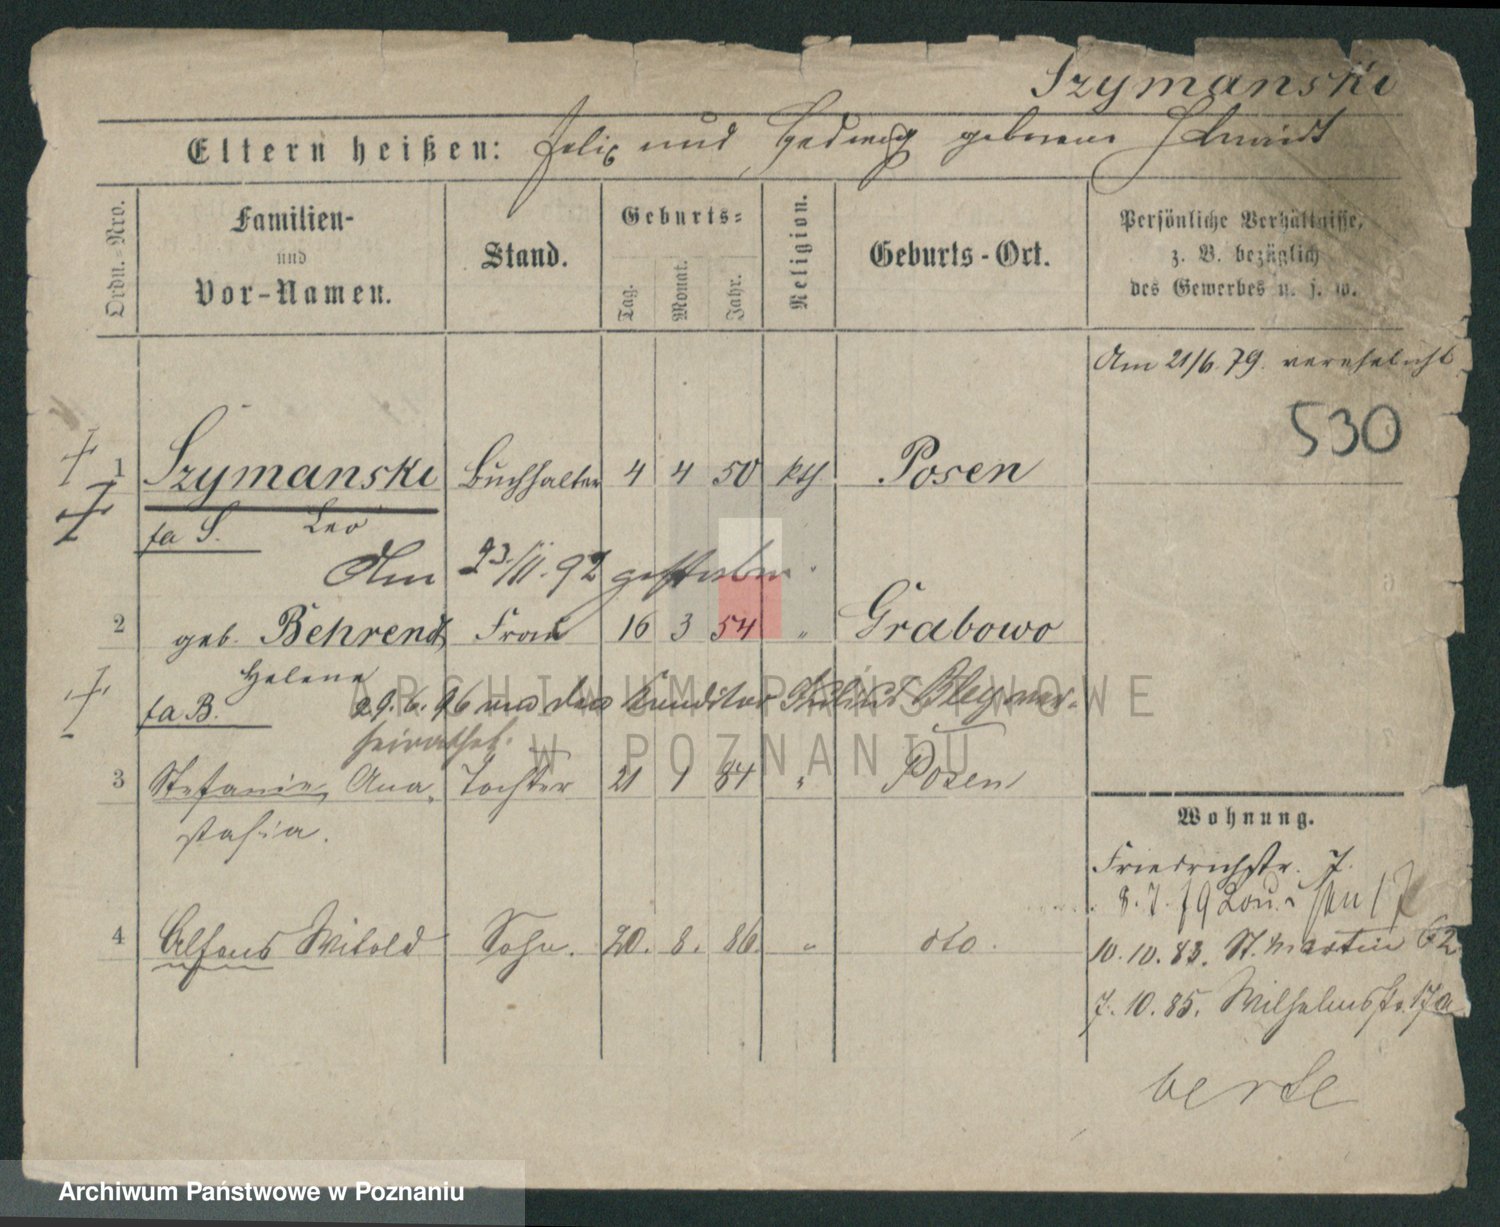 Szymanski
Eltern heißen: Felix und Hedwig geborene Schmidt
Ordn.-Nro.
Familien-
und
Vor-Namen.
Stand.
Geburts-
Tag. Monat. Jahr.
Religion.
Geburts-Ort.
Persönliche Verhältnisse,
z. B. bezüglich
des Gewerbes u. s. w.
Am 21/6. 79. verehelicht
530
1 Szymanski Buchhalter 4 4 50 kth Posen
fa S. Leo
Am 23./11. 92 gestorben.
2 geb. Behrend Frau 16 3 54 " Grabowo
Helene
fa B. 29.6.96 den Konditor ver-
heirathet.
3 Stefanie Ana- Tochter 21 1 84 " Posen
stasia.
4 Alfons Witold Sohn. 20. 8. 86. " dto.
Wohnung.
Friedrichstr. 7.
8. 7. 79
10. 10. 83. St. Martin 62
7. 10. 85. Wilhelmstr. 17a
verte
ARCHIWUM PAŃSTWOWE
W POZNANIU
Archiwum Państwowe w Poznaniu